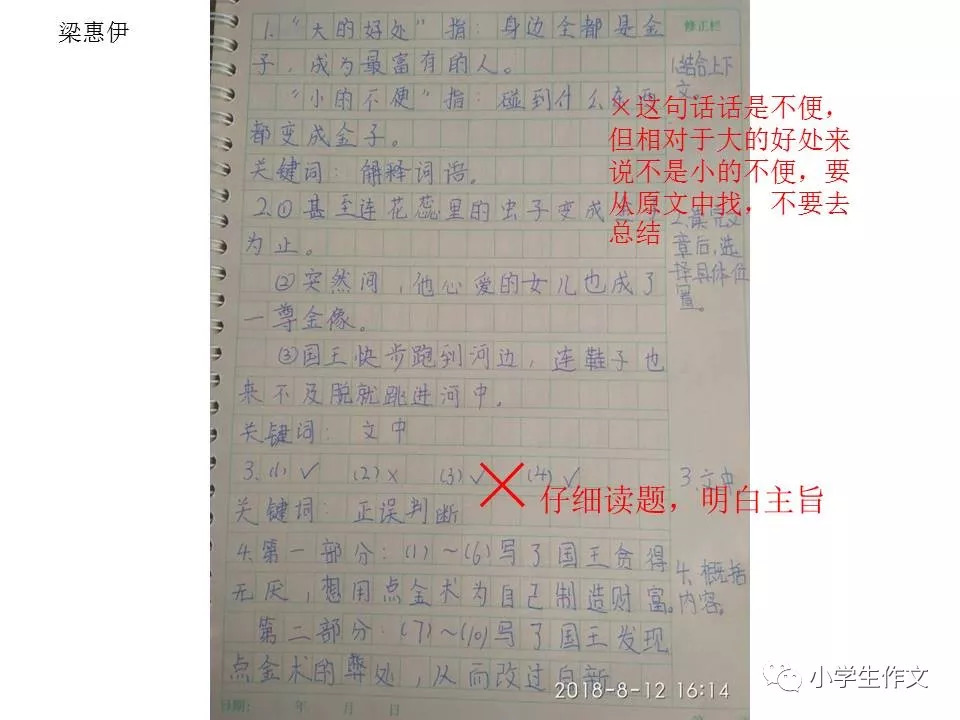 梁惠伊
1."大的好处"指:身边全都是金
修正栏
子,成为最富有的人。
1.结合上下
文。
"小的不便"指:碰到什么东西
※这句话话是不便,
都变成金子。
但相对于大的好处来
关键词:解释词语。
说不是小的不便,要
2.①甚至连花蕊里的虫子变成
从原文中找,不要去
总结
2.读完文
为止。
章后,选
择具体位
置。
②突然间,他心爱的女儿也成了
一尊金像。
③国王快步跑到河边,连鞋子也
来不及脱就跳进河中。
关键词:文中
3.(1)✓ (2)× (3)✓ (4)✓
3.文中
仔细读题,明白主旨
关键词:正误判断
4.第一部分:(1)~(6)写了国王贪得
4.概括
无厌,想用点金术为自己制造财富。
内容。
第二部分:(7)~(10)写了国王发现
点金术的弊处,从而改过自新
2018-8-12 16:14
小学生作文
日期: 年 月 日